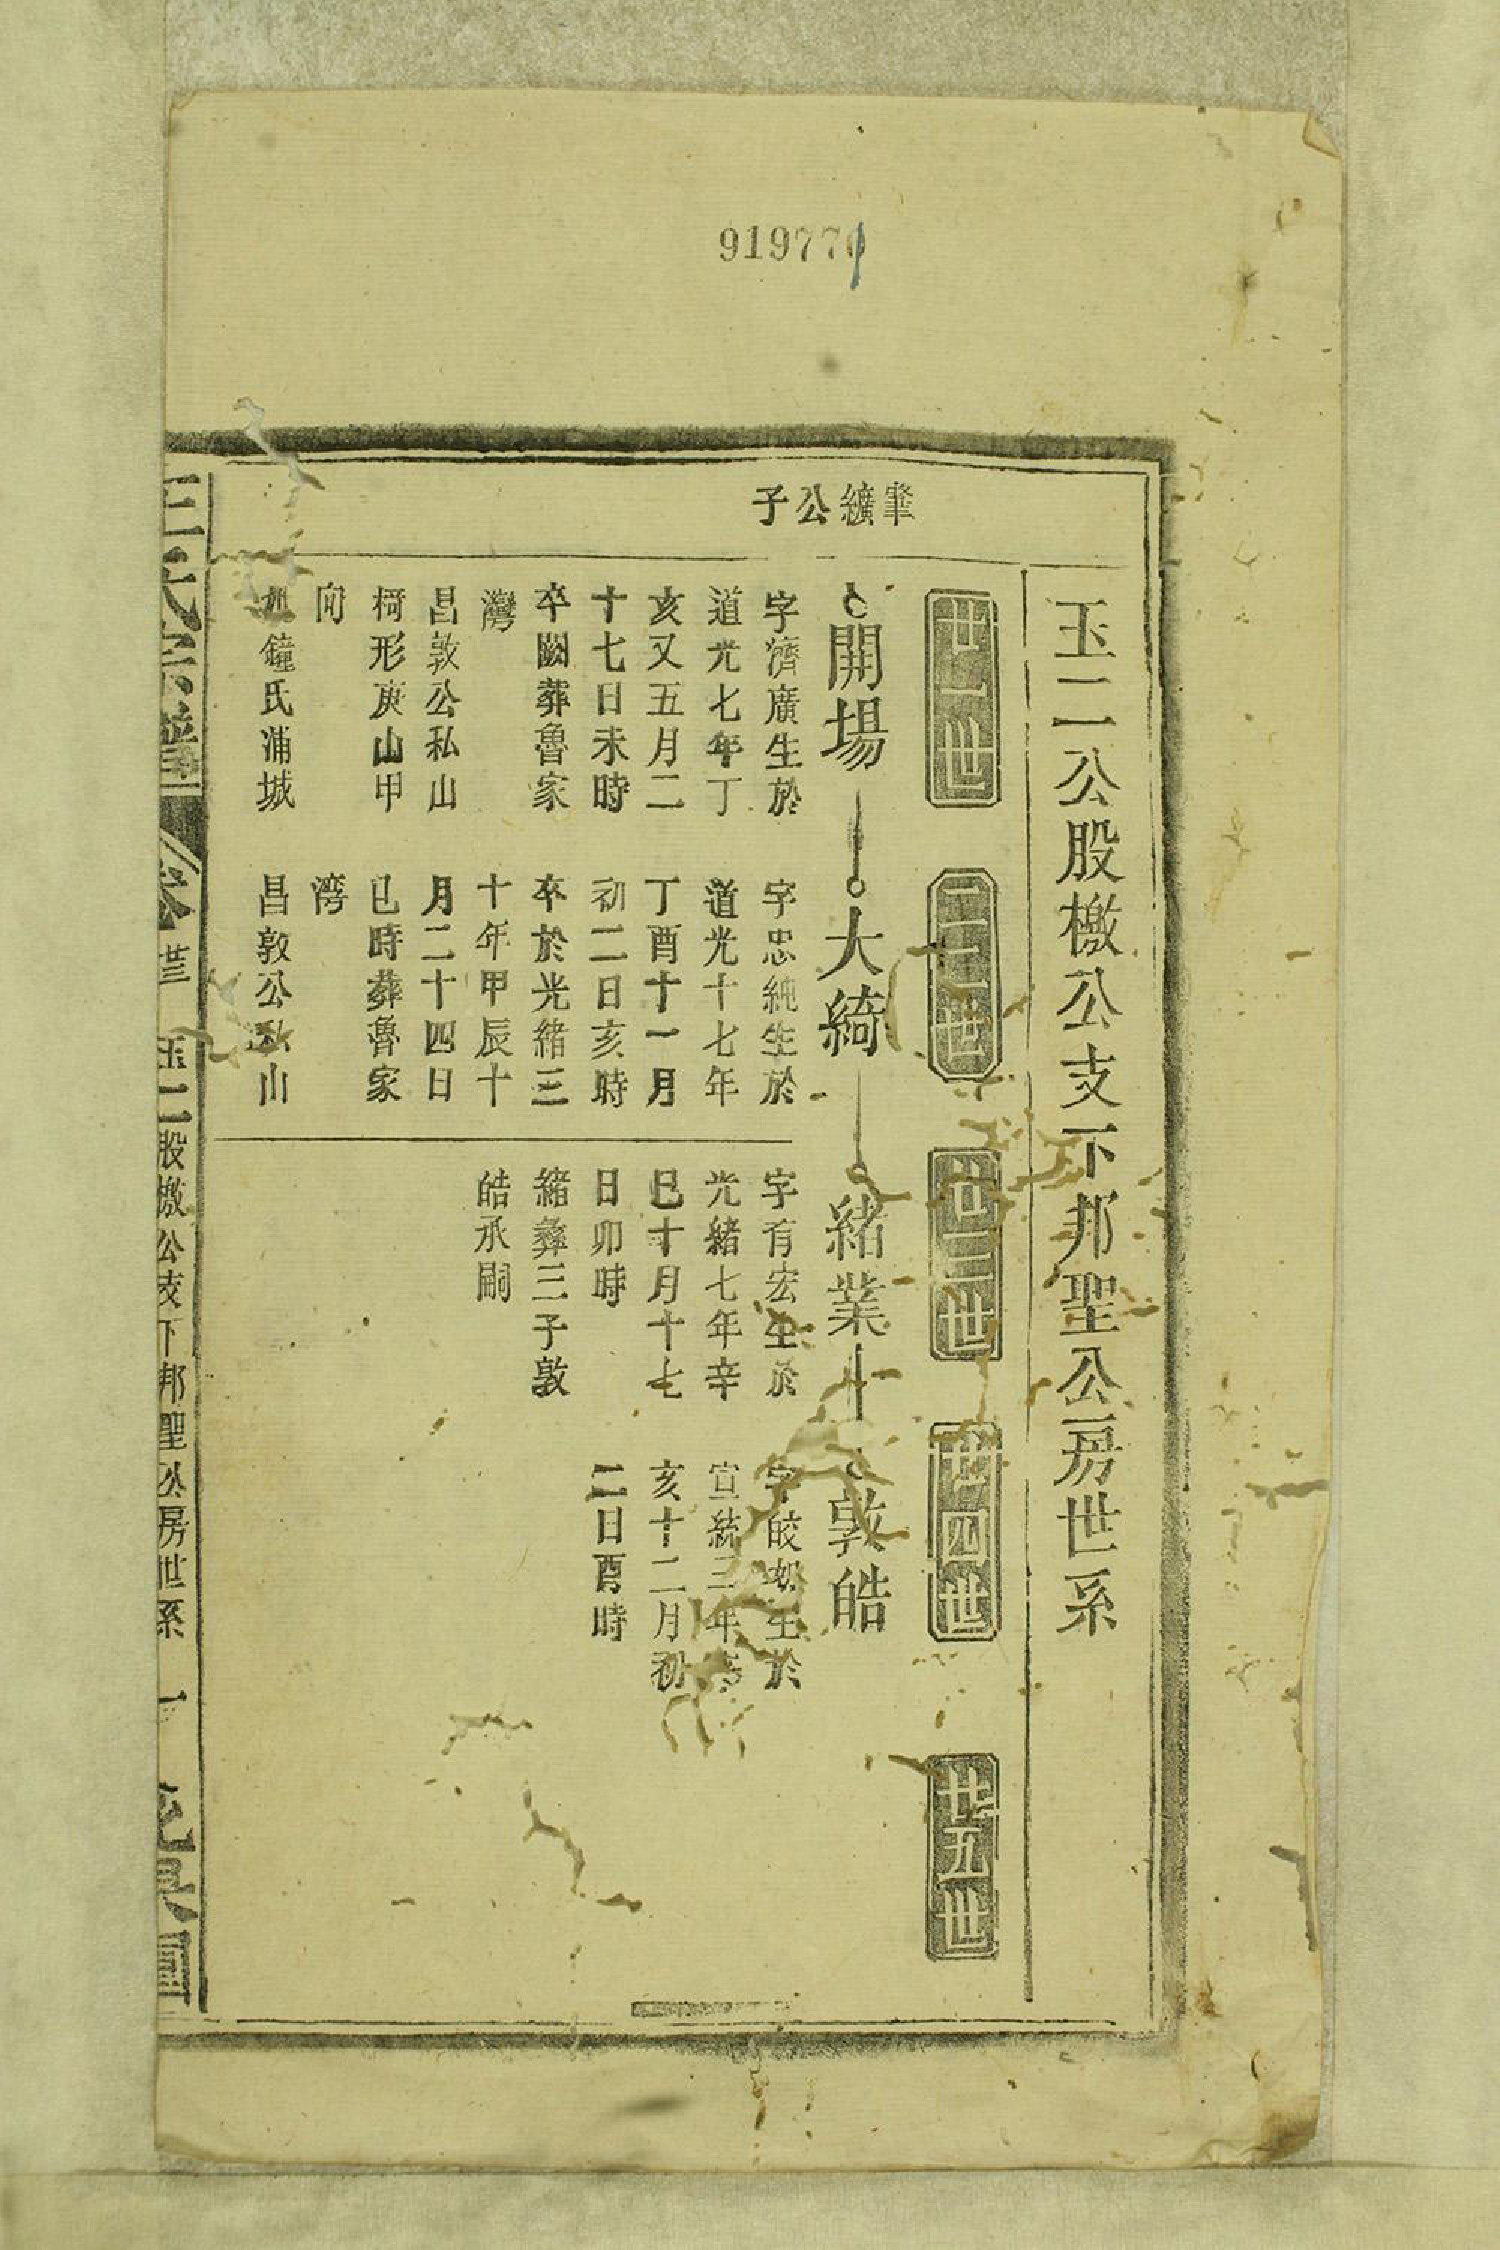 919770
玉二公股檄公支下邦聖公房世系
廿一世
二二世
廿三世
廿四世
廿五世
肇纊公子
開場
大綺
緒業
敦皓
字濟廣生於
道光七年丁
亥又五月二
十七日未時
卒闕葬魯家
灣
昌敦公私山
椅形庚山甲
向
鐘氏浦城
字忠純生於
道光十七年
丁酉十一月
初二日亥時
卒於光緒三
十年甲辰十
月二十四日
巳時葬魯家
湾
昌敦公私山
字有宏生於
光緒七年辛
巳十月十七
日卯時
緒彝三子敦
皓承嗣
字皎如生於
宣統三年辛
亥十二月初
二日酉時
王氏宗譜
卷
玉二股檄公支下邦聖公房世系
一